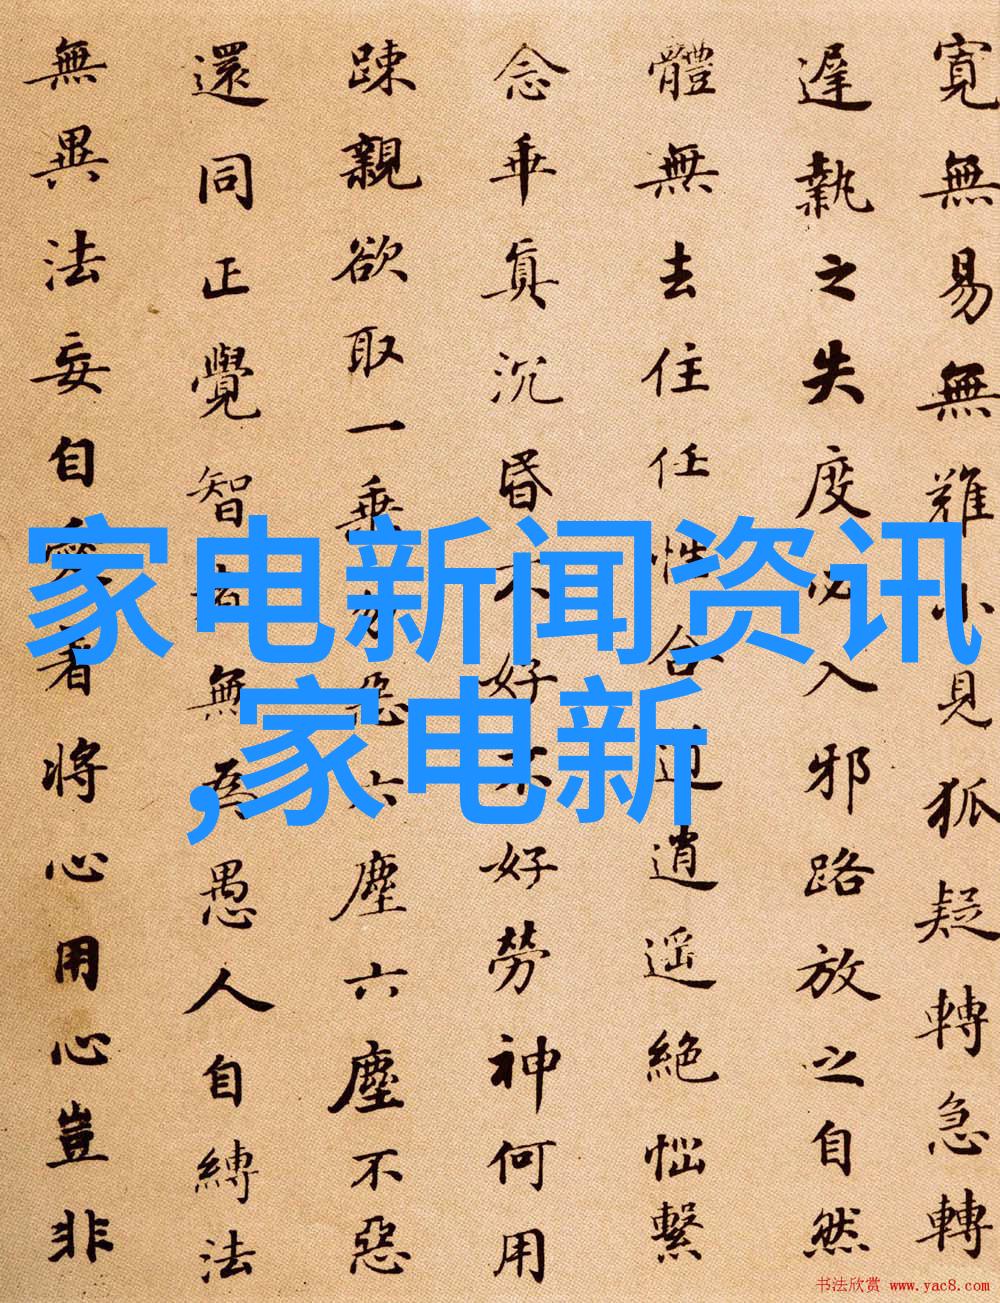 寬無易無難小見狐疑轉急轉
遲執之失度必入邪路放之自然
體無去住任性合道逍遥絶惱繫
念乖真沉昏不好不好勞神何用
踈親欲取一乘勿惡六塵六塵不惡
還同正覺智者無為愚人自縛法
無異法妄自愛著將心用心豈非
家电新闻资讯
,家电新
书法欣赏 www.yac8.com